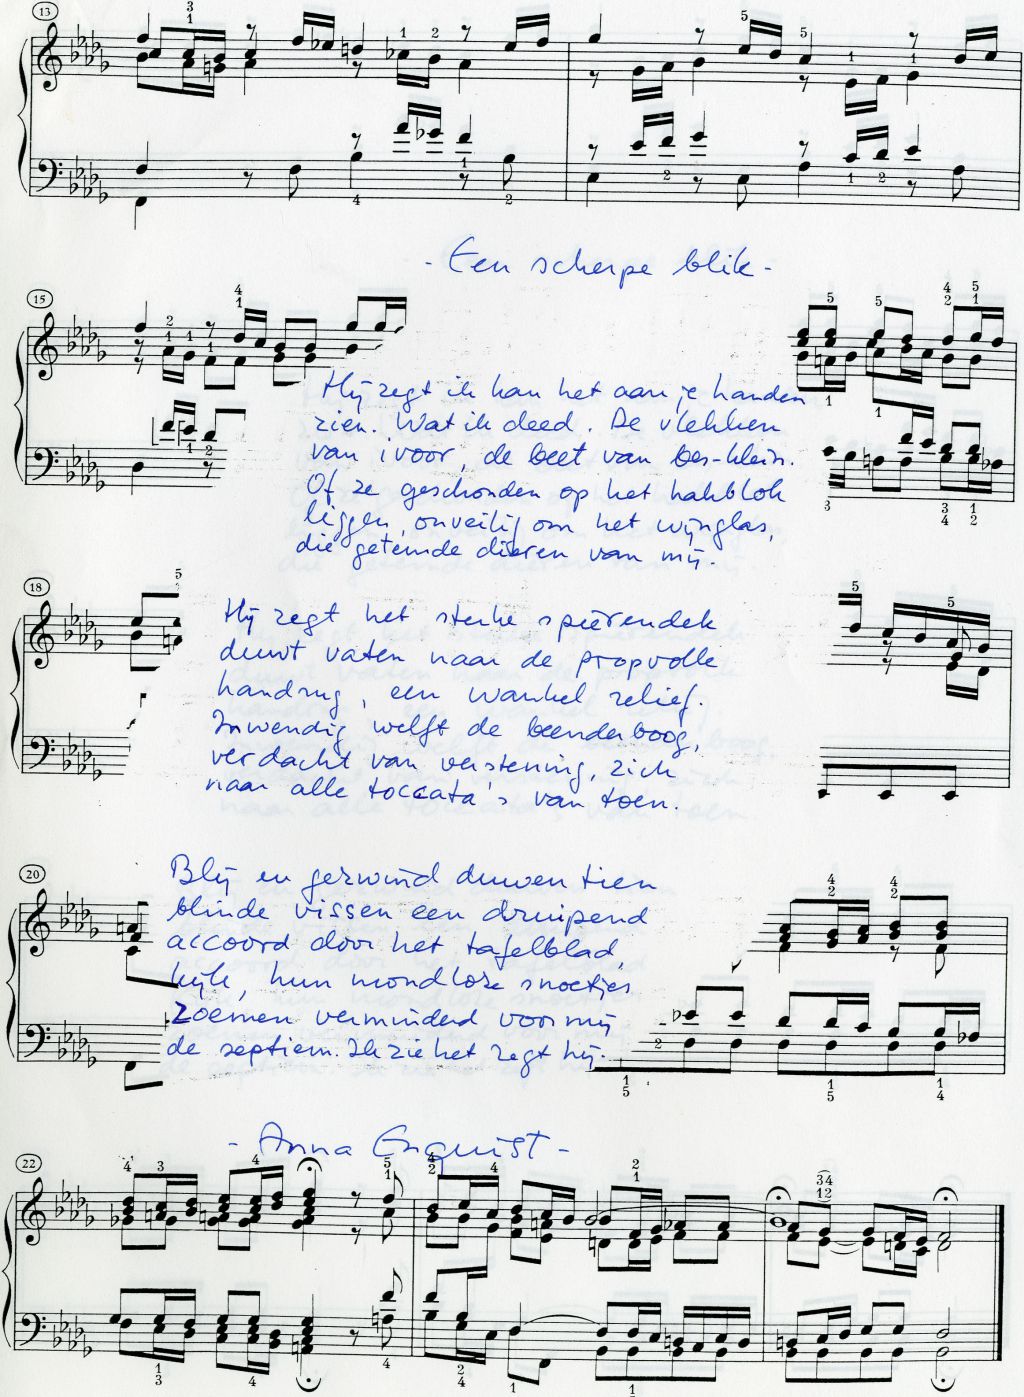 - Een scherpe blik -
Hij zegt ik kan het aan je handen
zien. Wat ik deed. De vlekken
van ivoor, de beet van bes-klein.
Of ze geschonden op het hakblok
liggen, onveilig om het wijnglas,
die getemde dieren van mij.
Hij zegt het sterke spierendek
duwt vaten naar de propvolle
handrug, een wankel reliëf.
Inwendig welft de beenderboog,
verdacht van verstening, zich
naar alle toccata's van toen.
Blij en gezwind duwen tien
blinde vissen een druipend
accoord door het tafelblad,
kijk, hun mondloze snoetjes
zoemen verminderd voor mij
de septiem. Ik zie het zegt hij.
- Anna Enquist -